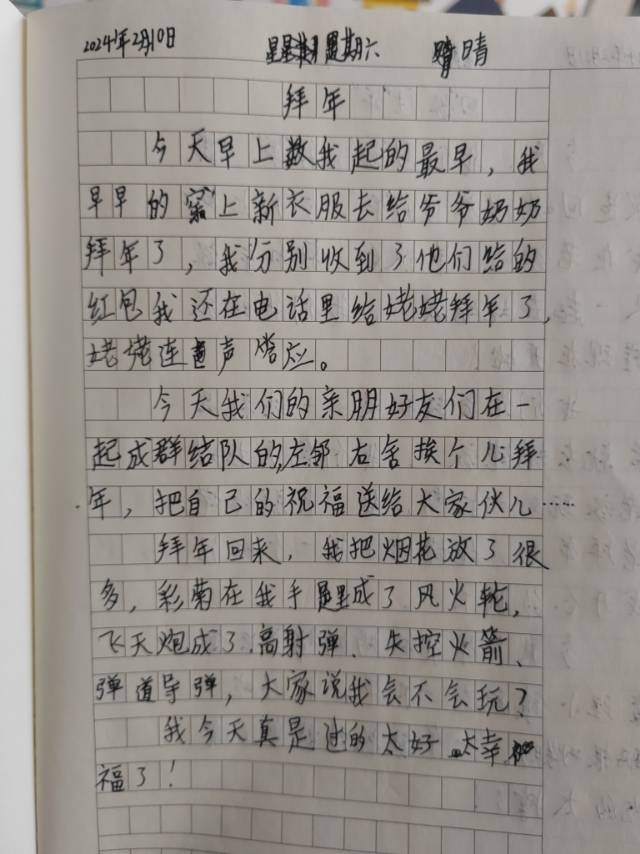 2024年2月10日 星期六 晴
拜年
今天早上数我起的最早，我
早早的穿上新衣服去给爷爷奶奶
拜年了，我分别收到了他们给的
红包我还在电话里给姥姥拜年了，
姥姥连声答应。
今天我们的亲朋好友们在一
起成群结队的，左邻右舍挨个儿拜
年，把自己的祝福送给大家伙儿……
拜年回来，我把烟花放了很
多，彩菊在我手里成了风火轮，
飞天炮成了高射弹、失控火箭、
弹道导弹，大家说我会不会玩？
我今天真是过的太好、太幸
福了！